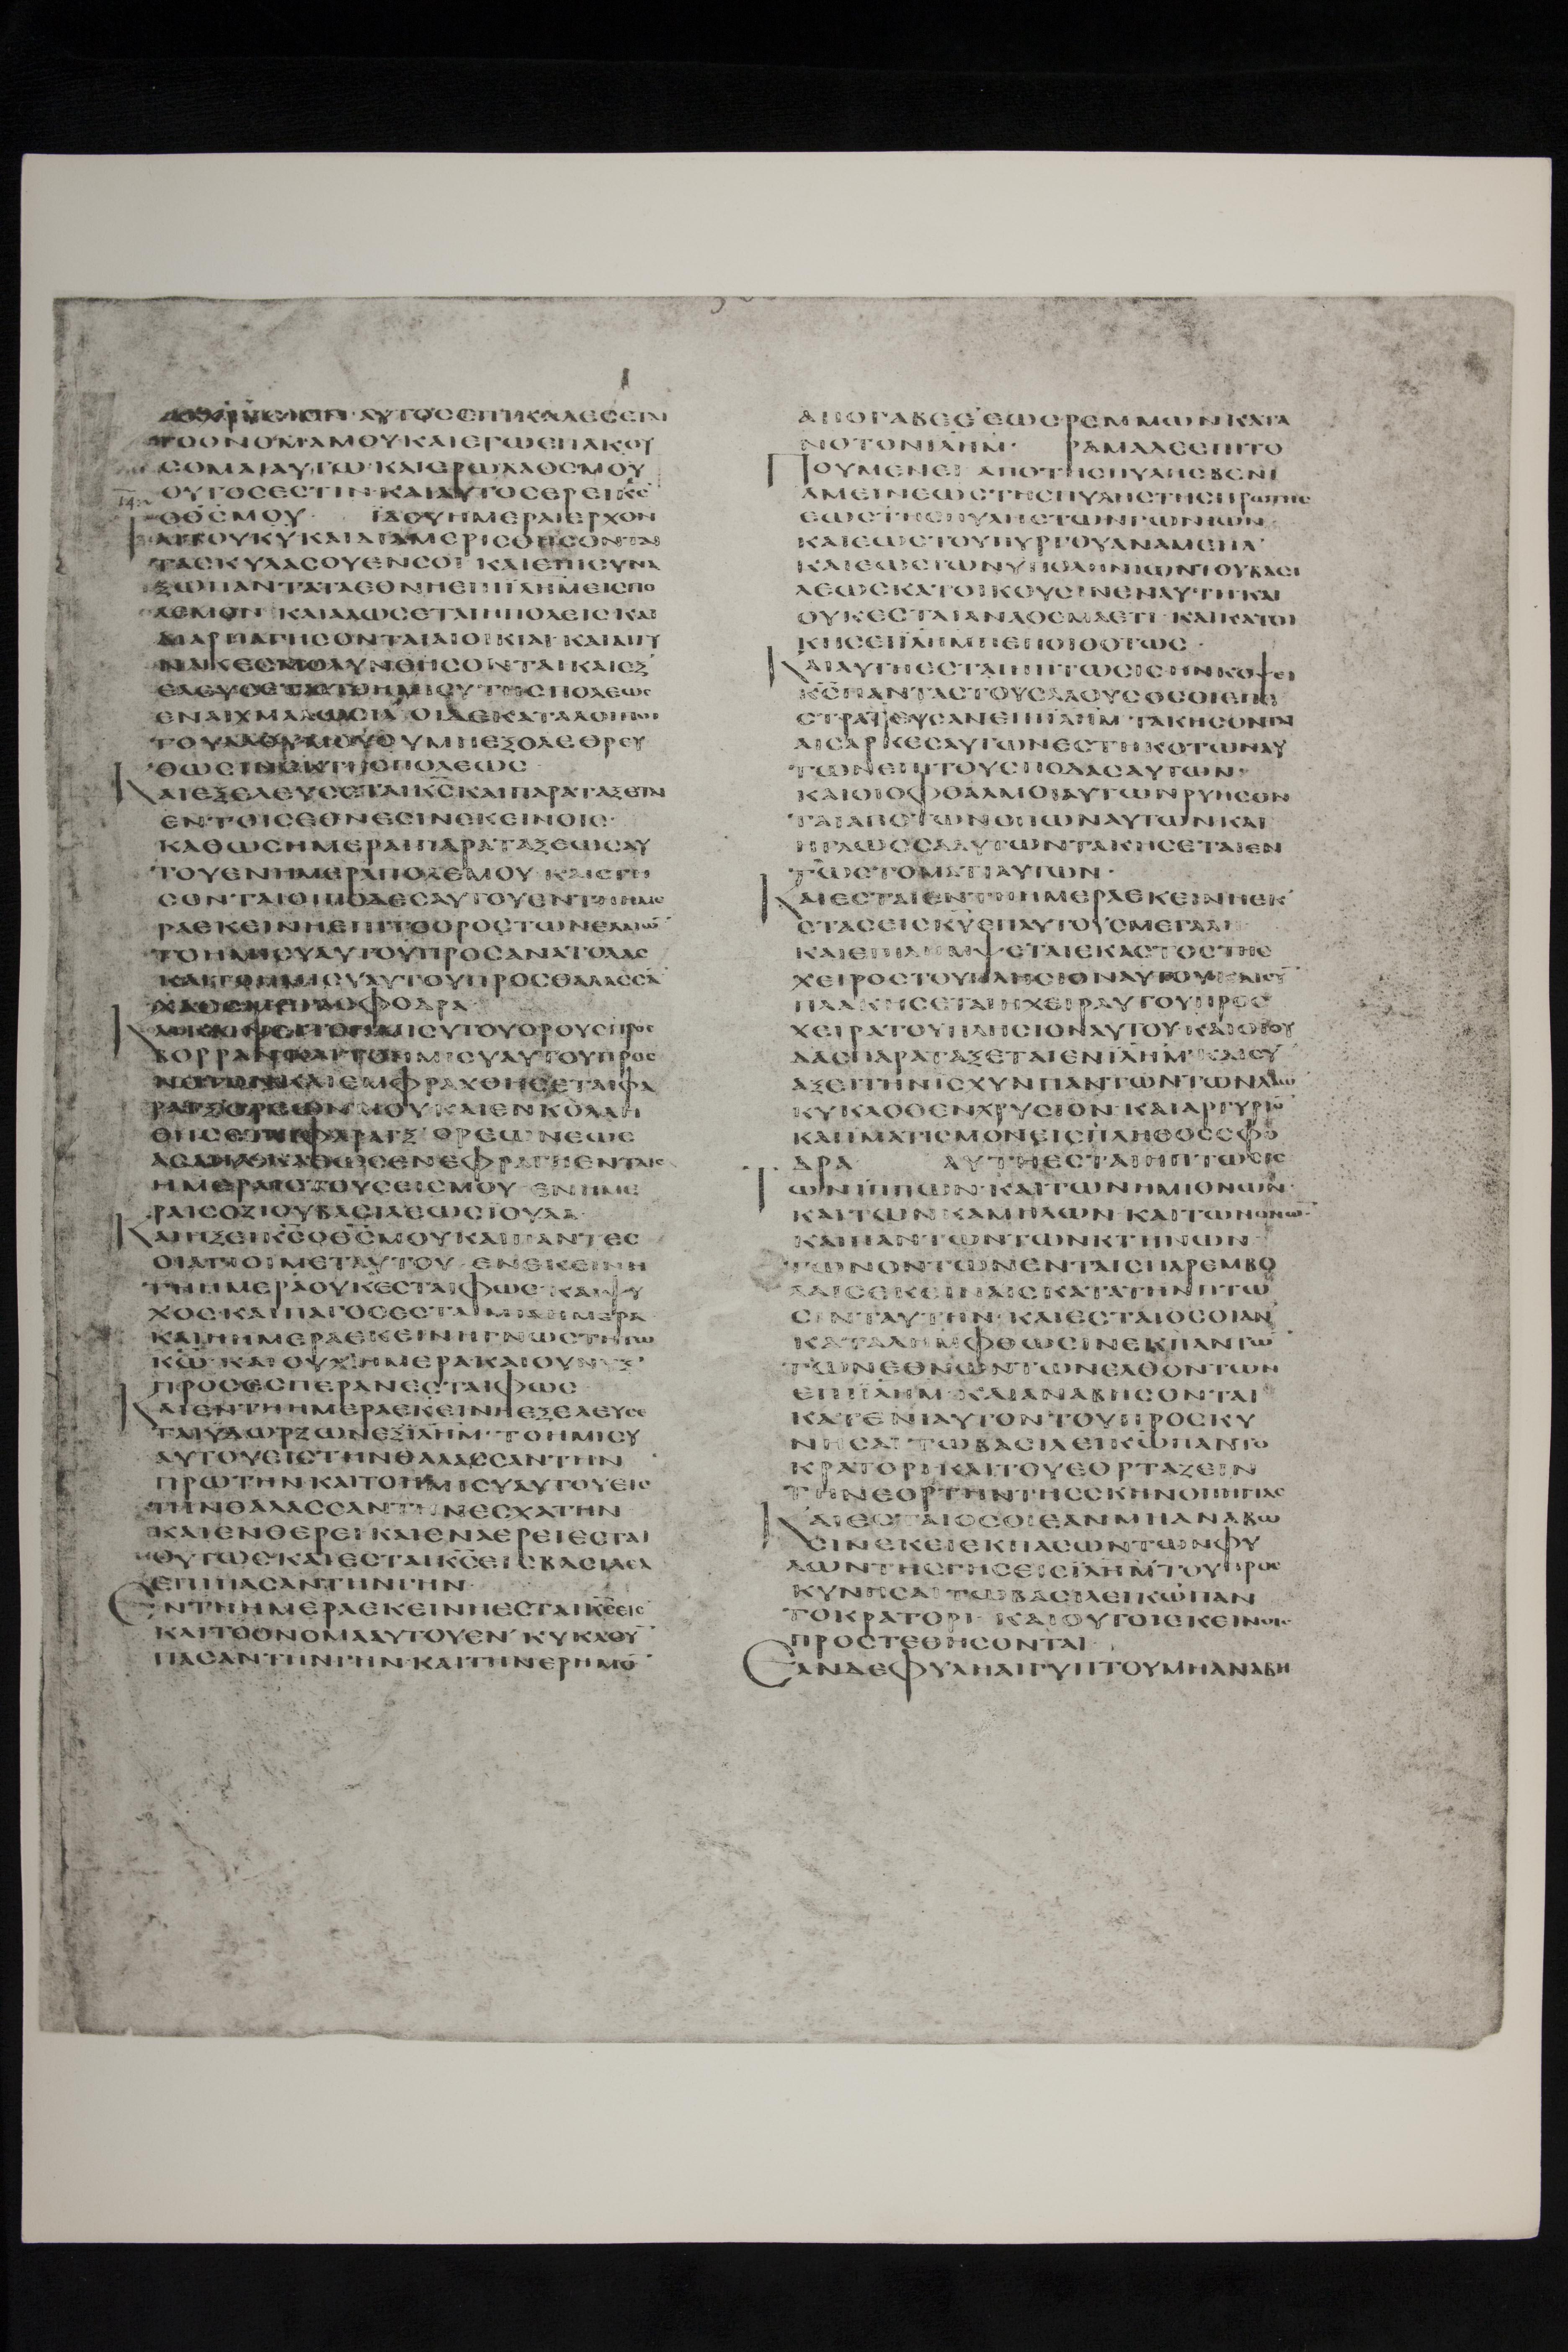 ΑΥΤΟϹΕΠΙΚΑΛΕϹΕΙΤΑΙ
ΤΟΟΝΟΜΑΜΟΥ·ΚΑΙΕΓΩΕΠΑΚΟΥ
ϹΟΜΑΙΑΥΤΩ·ΚΑΙΕΡΩΛΑΟϹΜΟΥ
ΟΥΤΟϹΕϹΤΙΝ·ΚΑΙΑΥΤΟϹΕΡΕΙΚ̅Ϲ̅
ΟΘ̅Ϲ̅ΜΟΥ· ΙΔΟΥΗΜΕΡΑΙΕΡΧΟΝ
ΤΑΙΤΟΥΚΥΚΑΙΔΙΑΜΕΡΙϹΘΗϹΟΝΤΑΙ
ΤΑϹΚΥΛΑϹΟΥΕΝϹΟΙ ΚΑΙΕΠΙϹΥΝΑ
ΞΩΠΑΝΤΑΤΑΕΘΝΗΕΠΙΙΛΗΜΕΙϹΠΟ
ΛΕΜΟΝ ΚΑΙΑΛΩϹΕΤΑΙΗΠΟΛΕΙϹΚΑΙ
ΔΙΑΡΠΑΓΗϹΟΝΤΑΙΑΙΟΙΚΙΑΙ·ΚΑΙΑΙΓΥ
ΝΑΙΚΕϹΜΟΛΥΝΘΗϹΟΝΤΑΙ·ΚΑΙΕΞ
ΕΛΕΥϹΕΤΑΙΤΟΗΜΙϹΥΤΗϹΠΟΛΕΩϹ
ΕΝΑΙΧΜΑΛΩϹΙΑ ΟΙΔΕΚΑΤΑΛΟΙΠΟΙ
ΤΟΥΛΑΟΥΜΟΥΟΥΜΗΕΞΟΛΕΘΡΕΥ
ΘΩϹΙΝΕΚΤΗϹΠΟΛΕΩϹ·
ΚΑΙΕΞΕΛΕΥϹΕΤΑΙΚ̅Ϲ̅ΚΑΙΠΑΡΑΤΑΞΕΤΑΙ
ΕΝΤΟΙϹΕΘΝΕϹΙΝΕΚΕΙΝΟΙϹ·
ΚΑΘΩϹΗΜΕΡΑΙΠΑΡΑΤΑΞΕΩϹΑΥ
ΤΟΥΕΝΗΜΕΡΑΠΟΛΕΜΟΥ·ΚΑΙϹΤΗ
ϹΟΝΤΑΙΟΙΠΟΔΕϹΑΥΤΟΥΕΝΤΗΗΜΕ
ΡΑΕΚΕΙΝΗΕΠΙΤΟΟΡΟϹΤΩΝΕΛΑΙΩ̅
ΤΟΗΜΙϹΥΑΥΤΟΥΠΡΟϹΑΝΑΤΟΛΑϹ
ΚΑΙΤΟΗΜΙϹΥΑΥΤΟΥΠΡΟϹΘΑΛΑϹϹΑ̅
ΧΑΟϹΜΕΓΑϹΦΟΔΡΑ
ΒΟΡΡΑΝΚΑΙΤΟΗΜΙϹΥΑΥΤΟΥΠΡΟϹ
ΝΟΤΟΝ·ΚΑΙΕΜΦΡΑΧΘΗϹΕΤΑΙΦΑ
ΡΑΓΞΟΡΕΩΝΜΟΥΚΑΙΕΝΚΟΛΛΗ
ΘΗϹΕΤΑΙΦΑΡΑΓΞ ΟΡΕΩΝΕΩϹ
ΑϹΑΗΛ·ΚΑΘΩϹΕΝΕΦΡΑΓΗΕΝΤΑΙϹ
ΗΜΕΡΑΙϹΤΟΥϹΕΙϹΜΟΥ ΕΝΗΜΕ
ΡΑΙϹΟΖΙΟΥΒΑϹΙΛΕΩϹΙΟΥΔΑ·
ΚΑΙΗΞΕΙΚ̅Ϲ̅ΟΘ̅Ϲ̅ΜΟΥΚΑΙΠΑΝΤΕϹ
ΟΙΑΓΙΟΙΜΕΤΑΥΤΟΥ ΕΝΕΚΕΙΝΗ
ΤΗΗΜΕΡΑΟΥΚΕϹΤΑΙΦΩϹ·ΚΑΙΨΥ
ΧΟϹ·ΚΑΙΠΑΓΟϹΕϹΤΑΙΜΙΑΗΜΕΡΑ
ΚΑΙΗΗΜΕΡΑΕΚΕΙΝΗΓΝΩϹΤΗΤΩ
ΚΩ̅·ΚΑΙΟΥΧΗΜΕΡΑΚΑΙΟΥΝΥΞ·
ΠΡΟϹΕϹΠΕΡΑΝΕϹΤΑΙΦΩϹ
ΚΑΙΕΝΤΗΗΜΕΡΑΕΚΕΙΝΗΕΞΕΛΕΥϹΕ
ΤΑΙΥΔΩΡΖΩΝΕΞΙΛΗΜ·ΤΟΗΜΙϹΥ
ΑΥΤΟΥΕΙϹΤΗΝΘΑΛΑϹϹΑΝΤΗΝ
ΠΡΩΤΗΝ·ΚΑΙΤΟΗΜΙϹΥΑΥΤΟΥΕΙϹ
ΤΗΝΘΑΛΑϹϹΑΝΤΗΝΕϹΧΑΤΗΝ
ΚΑΙΕΝΘΕΡΕΙ·ΚΑΙΕΝΑΕΡΕΙΕϹΤΑΙ
ΟΥΤΩϹ·ΚΑΙΕϹΤΑΙΚ̅Ϲ̅ΕΙϹΒΑϹΙΛΕΑ
ΕΠΙΠΑϹΑΝΤΗΝΓΗΝ
ΕΝΤΗΗΜΕΡΑΕΚΕΙΝΗΕϹΤΑΙΚ̅Ϲ̅ΕΙϹ
ΚΑΙΤΟΟΝΟΜΑΑΥΤΟΥΕΝ·ΚΥΚΛΟΥ̅
ΠΑϹΑΝΤΗΝΓΗΝ·ΚΑΙΤΗΝΕΡΗΜΟ̅
ΑΠΟΓΑΒΕΕΕΩϹΡΕΜΜΩΝΚΑΤΑ
ΝΟΤΟΝΙΛΗΜ· ΡΑΜΑΔΕΕΠΙΤΟ
ΠΟΥΜΕΝΕΙ ΑΠΟΤΗϹΠΥΛΗϹΒΕΝΙ
ΑΜΕΙΝΕΩϹΤΗϹΠΥΛΗϹΤΗϹΠΡΩΤΗϹ
ΕΩϹΤΗϹΠΥΛΗϹΤΩΝΓΩΝΙΩΝ
ΚΑΙΕΩϹΤΟΥΠΥΡΓΟΥΑΝΑΜΕΗΛ·
ΚΑΙΕΩϹΤΩΝΥΠΟΛΗΝΙΩΝΤΟΥΒΑϹΙ
ΛΕΩϹΚΑΤΟΙΚΟΥϹΙΝΕΝΑΥΤΗΚΑΙ
ΟΥΚΕϹΤΑΙΑΝΑΘΕΜΑΕΤΙ·ΚΑΙΚΑΤΟΙ
ΚΗϹΕΙΙΛΗΜΠΕΠΟΙΘΟΤΩϹ·
ΚΑΙΑΥΤΗΕϹΤΑΙΗΠΤΩϹΙϹΗΝΚΟΨΕΙ
Κ̅Ϲ̅ΠΑΝΤΑϹΤΟΥϹΛΑΟΥϹΟϹΟΙΕΠΕ
ϹΤΡΑΤΕΥϹΑΝΕΠΙΙΛΗΜ·ΤΑΚΗϹΟΝΤΑΙ
ΑΙϹΑΡΚΕϹΑΥΤΩΝΕϹΤΗΚΟΤΩΝΑΥ
ΤΩΝΕΠΙΤΟΥϹΠΟΔΑϹΑΥΤΩΝ·
ΚΑΙΟΙΟΦΘΑΛΜΟΙΑΥΤΩΝΡΥΗϹΟΝ
ΤΑΙΑΠΟΤΩΝΟΠΩΝΑΥΤΩΝΚΑΙ
ΗΓΛΩϹϹΑΑΥΤΩΝΤΑΚΗϹΕΤΑΙΕΝ
ΤΩϹΤΟΜΑΤΙΑΥΤΩΝ·
ΚΑΙΕϹΤΑΙΕΝΤΗΗΜΕΡΑΕΚΕΙΝΗΕΚ
ϹΤΑϹΕΙϹΚΥ̅ΕΠΑΥΤΟΥϹΜΕΓΑΛΗ
ΚΑΙΕΠΙΛΗΜΨΕΤΑΙΕΚΑϹΤΟϹΤΗϹ
ΧΕΙΡΟϹΤΟΥΠΛΗϹΙΟΝΑΥΤΟΥ·ΚΑΙϹΥ̅
ΠΛΑΚΗϹΕΤΑΙΗΧΕΙΡΑΥΤΟΥΠΡΟϹ
ΧΕΙΡΑΤΟΥΠΛΗϹΙΟΝΑΥΤΟΥ·ΚΑΙΟΙΟΥ
ΔΑϹΠΑΡΑΤΑΞΕΤΑΙΕΝΙΛΗΜ·ΚΑΙϹΥ
ΑΞΕΙΤΗΝΙϹΧΥΝΠΑΝΤΩΝΤΩΝΛΑΩ̅
ΚΥΚΛΟΘΕΝΧΡΥϹΙΟΝ·ΚΑΙΑΡΓΥΡΙΟ̅
ΚΑΙΙΜΑΤΙϹΜΟΝΕΙϹΠΛΗΘΟϹϹΦΟ
ΔΡΑ ΑΥΤΗΕϹΤΑΙΗΠΤΩϹΙϹ
ΤΩΝΙΠΠΩΝ·ΚΑΙΤΩΝΗΜΙΟΝΩΝ·
ΚΑΙΤΩΝΚΑΜΗΛΩΝ·ΚΑΙΤΩΝΟΝΩ̅·
ΚΑΙΠΑΝΤΩΝΤΩΝΚΤΗΝΩΝ
ΤΩΝΟΝΤΩΝΕΝΤΑΙϹΠΑΡΕΜΒΟ
ΛΑΙϹΕΚΕΙΝΑΙϹΚΑΤΑΤΗΝΠΤΩ
ϹΙΝΤΑΥΤΗΝ·ΚΑΙΕϹΤΑΙΟϹΟΙΑΝ
ΚΑΤΑΛΗΜΦΘΩϹΙΝΕΚΠΑΝΤΩ̅
ΤΩΝΕΘΝΩΝΤΩΝΕΛΘΟΝΤΩΝ
ΕΠΙΙΛΗΜ·ΚΑΙΑΝΑΒΗϹΟΝΤΑΙ
ΚΑΤΕΝΙΑΥΤΟΝΤΟΥΠΡΟϹΚΥ
ΝΗϹΑΙΤΩΒΑϹΙΛΕΙΚΩ̅ΠΑΝΤΟ
ΚΡΑΤΟΡΙ·ΚΑΙΤΟΥΕΟΡΤΑΖΕΙΝ
ΤΗΝΕΟΡΤΗΝΤΗϹϹΚΗΝΟΠΗΓΙΑϹ
ΚΑΙΕϹΤΑΙΟϹΟΙΕΑΝΜΗΑΝΑΒΩ
ϹΙΝΕΚΕΙΕΚΠΑϹΩΝΤΩΝΦΥ
ΛΩΝΤΗϹΓΗϹΕΙϹΙΛΗΜΤΟΥΠΡΟϹ
ΚΥΝΗϹΑΙΤΩΒΑϹΙΛΕΙΚΩ̅ΠΑΝ
ΤΟΚΡΑΤΟΡΙ·ΚΑΙΟΥΤΟΙΕΚΕΙΝΟΙϹ
ΠΡΟϹΤΕΘΗϹΟΝΤΑΙ·
ΕΑΝΔΕΦΥΛΗΑΙΓΥΠΤΟΥΜΗΑΝΑΒΗ